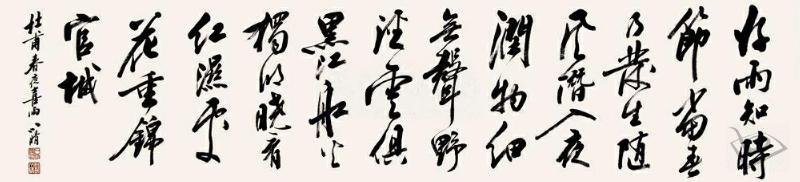 好雨知時
節當春
乃發生隨
風潛入夜
潤物細
無聲野
徑雲俱
黑江船火
獨明曉看
紅濕處
花重錦
官城
杜甫春夜喜雨